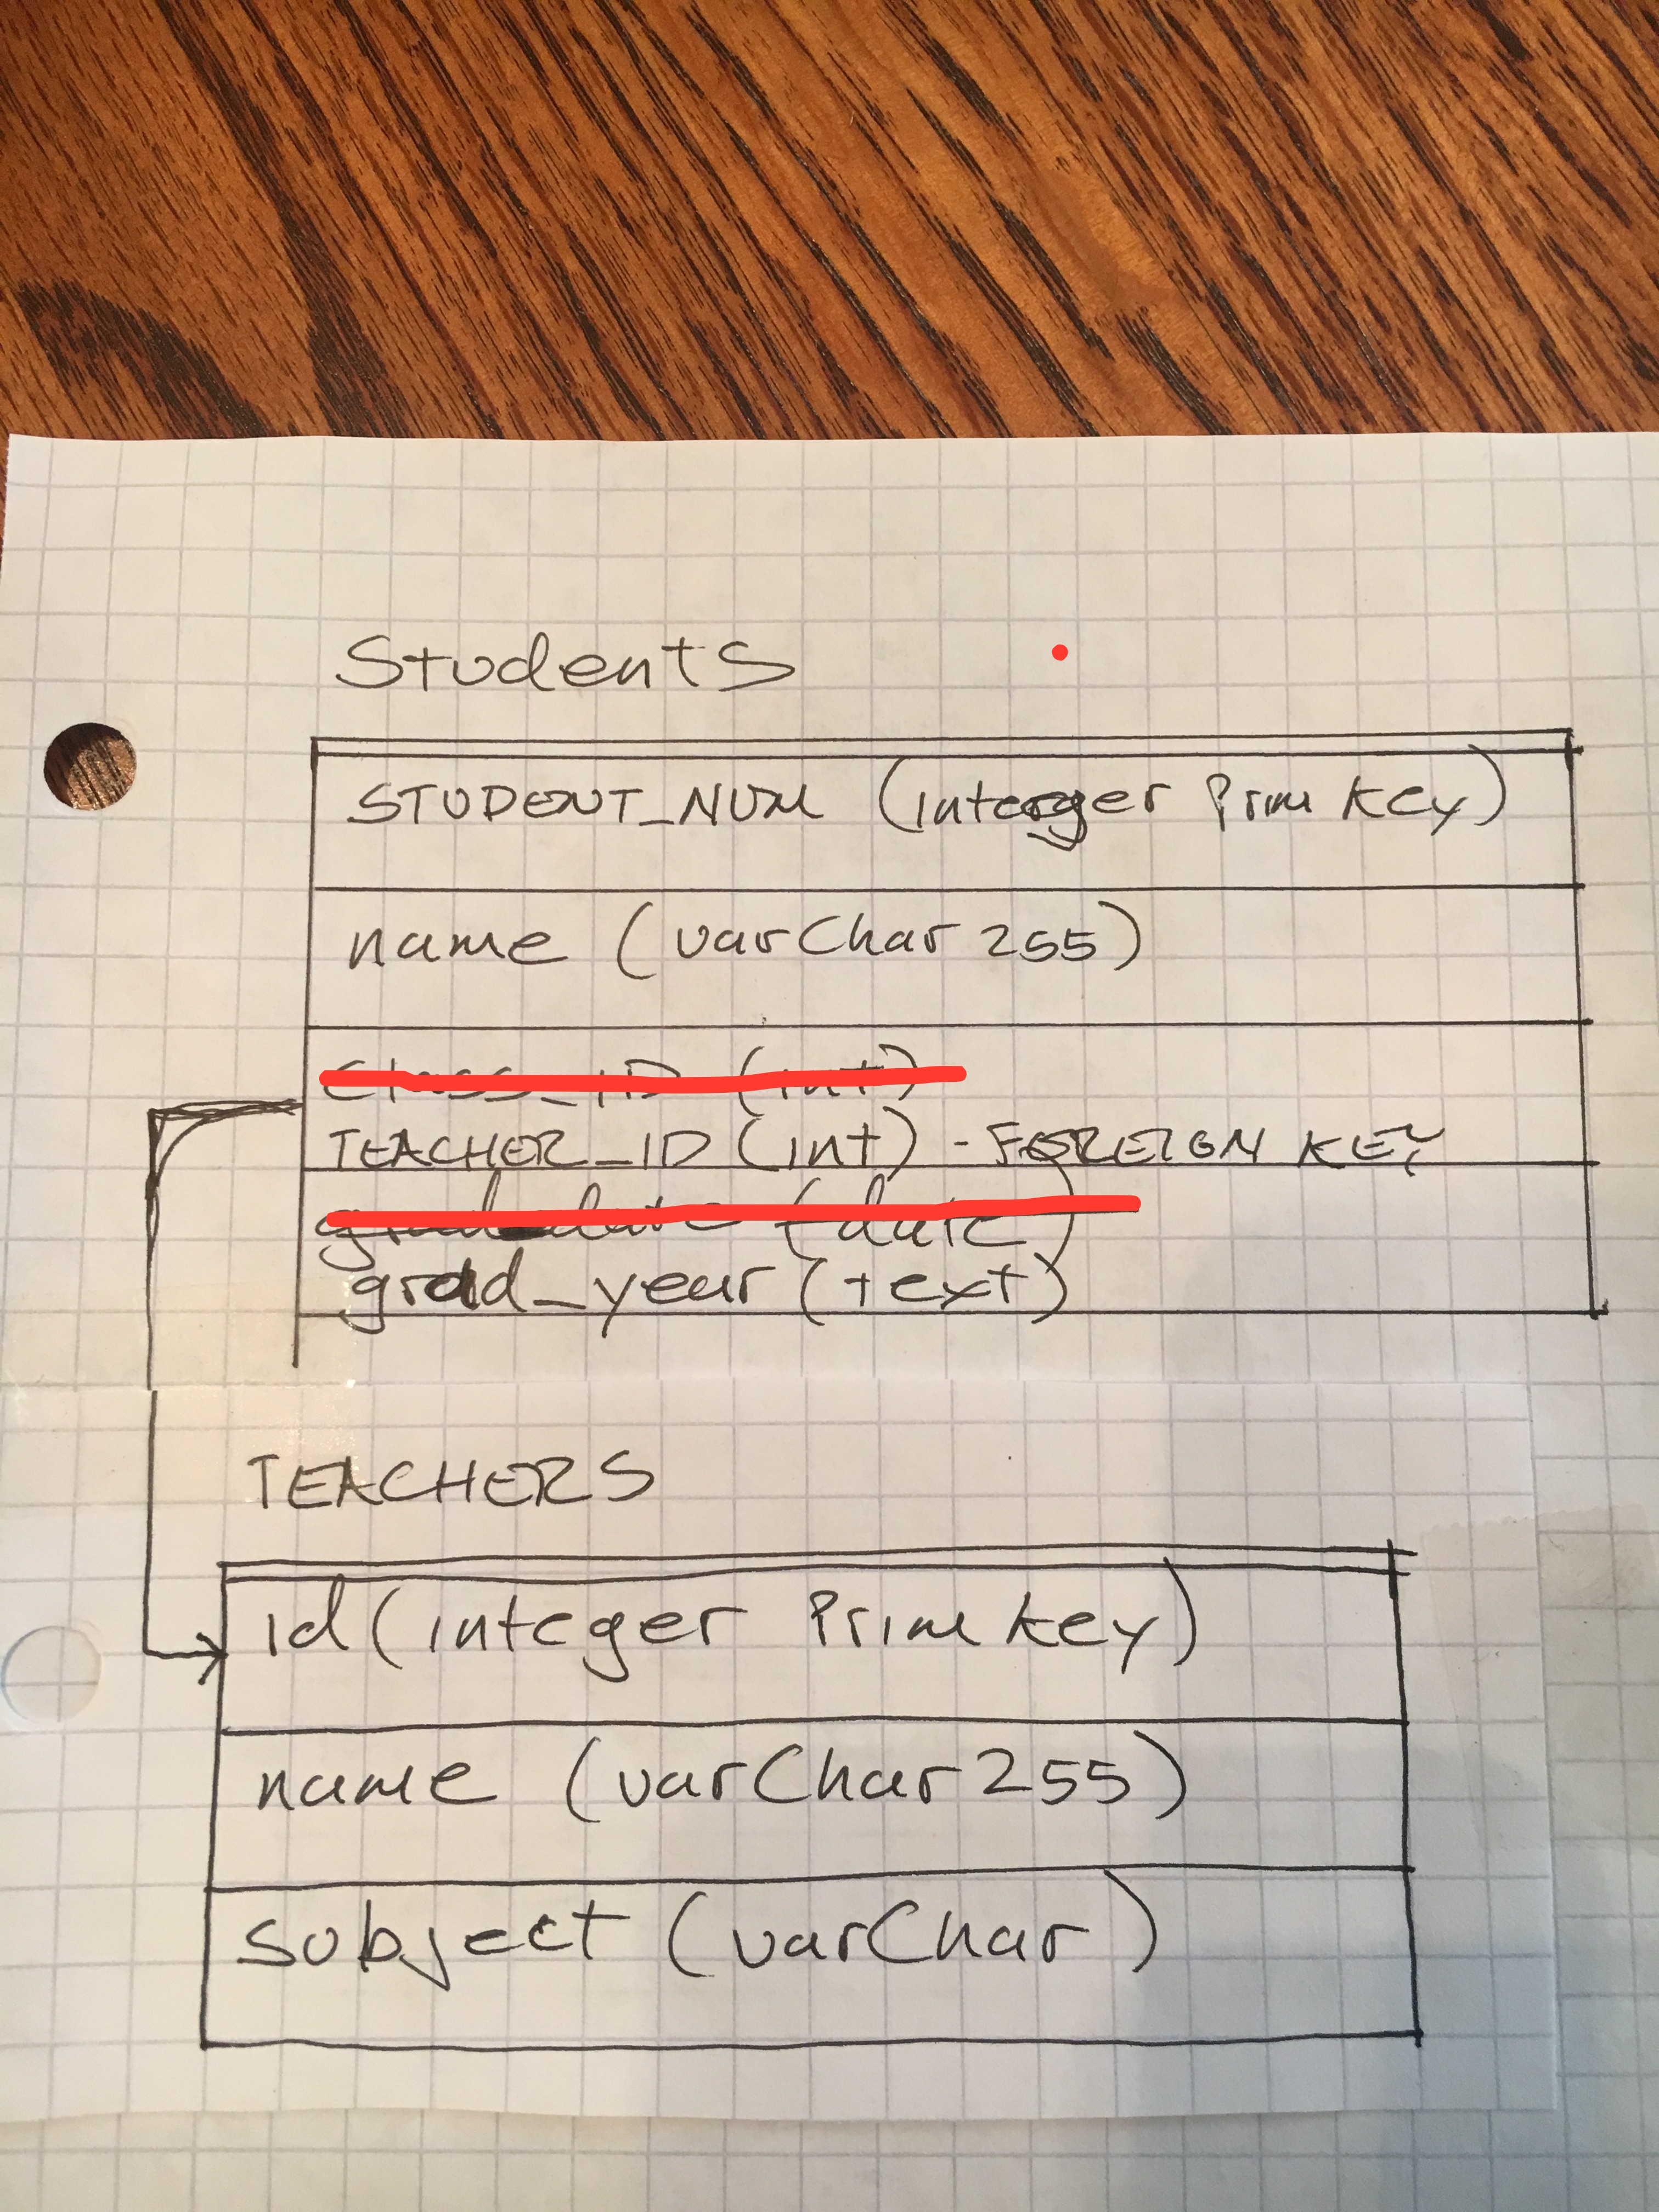 Students
STUDENT_NUM (integer Prim Key)
name (varChar 255)
Class_ID (int)
TEACHER_ID (int) - FOREIGN KEY
(date)
grad_year (text)
TEACHERS
id (integer Prim key)
name (varChar 255)
subject (varChar)